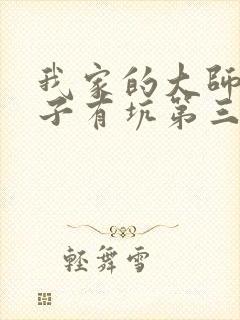 我家的大師
子有坑第三
輕舞雪